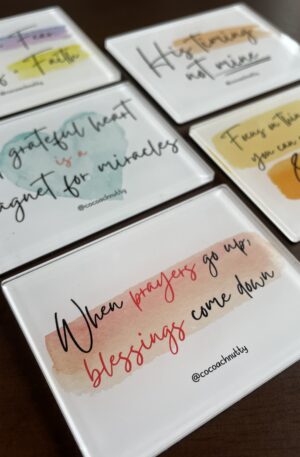 Fear
Faith
@cocoachnutty
His timing
not mine
@cocoachnutty
grateful heart
is a
magnet for miracles
@cocoachnutty
Focus on thin
you can
When prayers go up,
blessings come down
@cocoachnutty